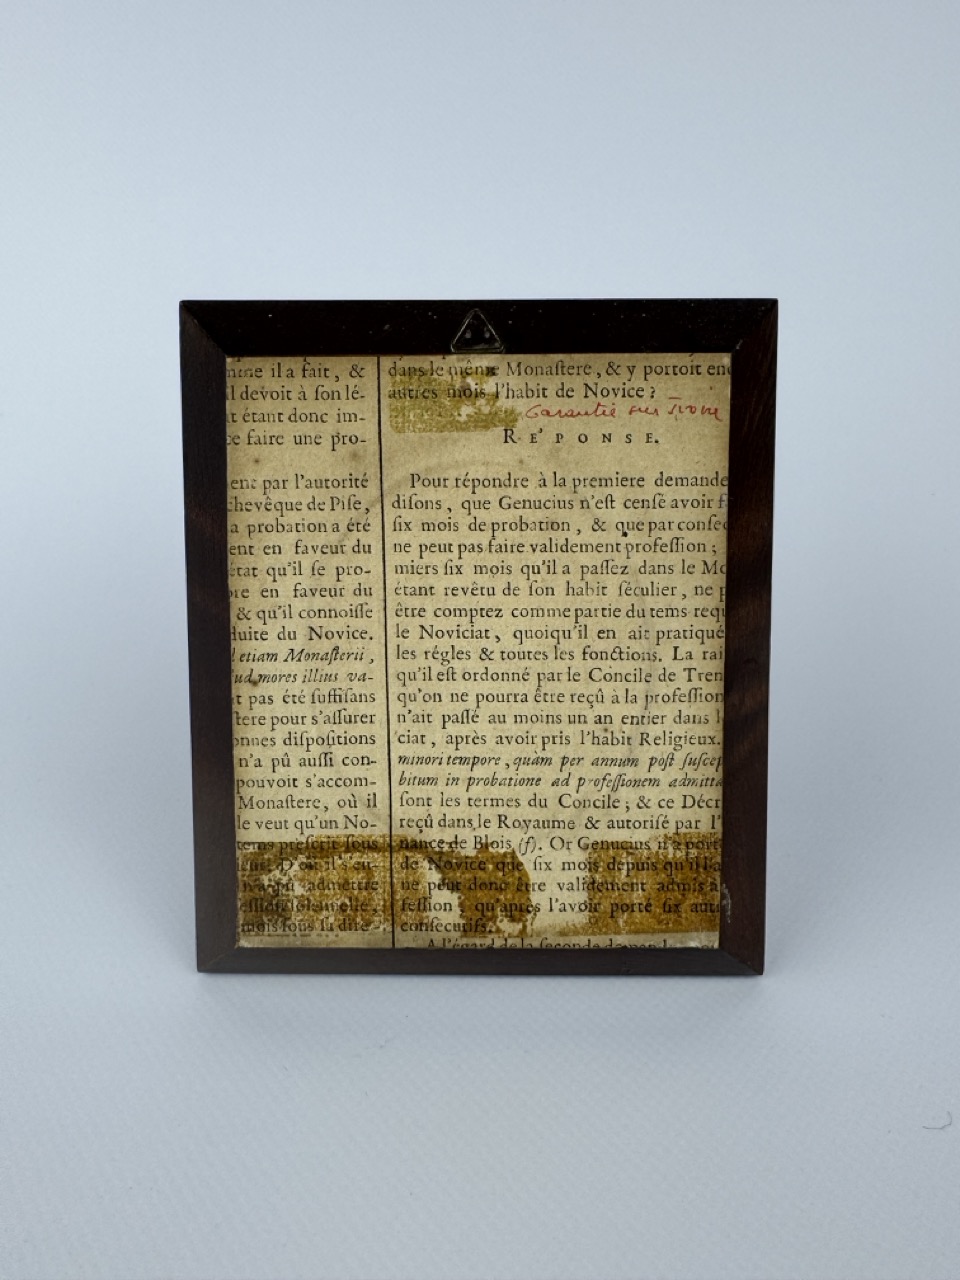 il a fait, &
il devoit à ſon lé-
t étant donc im-
ce faire une pro-
ent par l'autorité
chevêque de Piſe,
a probation a été
ent en faveur du
état qu'il ſe pro-
en faveur du
& qu'il connoiſſe
duite du Novice.
etiam Monaſterii,
mores illius va-
t pas été ſuffiſans
ſtere pour s'aſſurer
onnes diſpoſitions
n'a pû auſſi con-
pouvoit s'accom-
Monaſtere, où il
le veut qu'un No-
tems preſcrit ſous
admettre
dans le même Monaſtere, & y portoit en
autres mois l'habit de Novice?
Garantie sur Ivoire
RE'PONSE.
Pour répondre à la premiere demande
diſons, que Genucius n'eſt cenſé avoir f
ſix mois de probation, & que par conſec
ne peut pas faire validement profeſſion;
miers ſix mois qu'il a paſſez dans le Mo
étant revêtu de ſon habit ſéculier, ne p
être comptez comme partie du tems requ
le Noviciat, quoiqu'il en ait pratiqué
les régles & toutes les fonctions. La rai
qu'il eſt ordonné par le Concile de Tren
qu'on ne pourra être reçû à la profeſſion
n'ait paſſé au moins un an entier dans l
ciat, après avoir pris l'habit Religieux.
minori tempore, quàm per annum poſt ſuſcep
bitum in probatione ad profeſſionem admitta
ſont les termes du Concile; & ce Décr
reçû dans le Royaume & autoriſé par l'
nance de Blois (f). Or Genucius n'a porté
de Novice que ſix mois depuis qu'il l'a
ne peut donc être validement admis à
feſſion, qu'après l'avoir porté ſix aut
conſecutifs.
A l'égard de la ſeconde